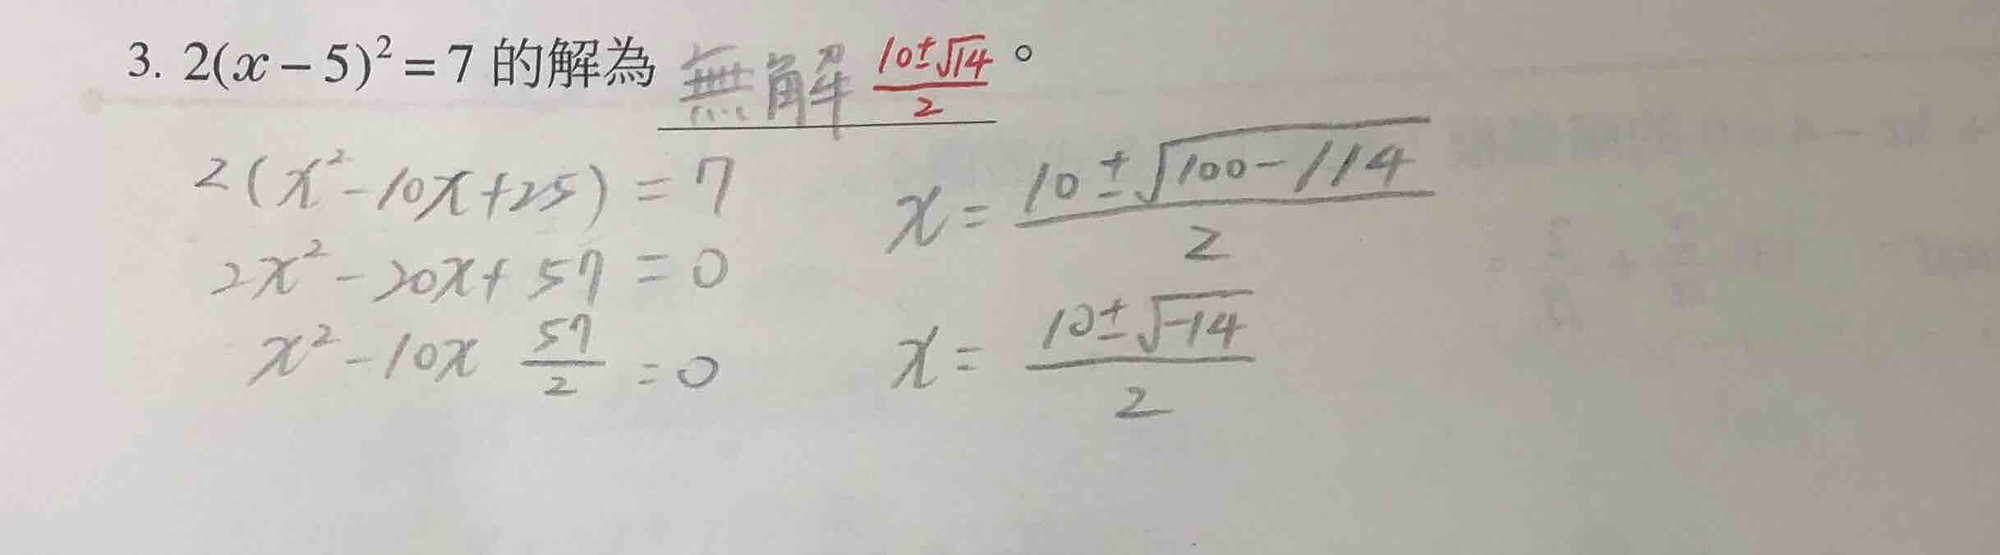 3. 2(x－5)²＝7 的解為 無解 (10±√14)/2 。
2(x²-10x+25)=7
2x²-20x+57=0
x²-10x 57/2 =0
x=(10±√(100-114))/2
x=(10±√(-14))/2